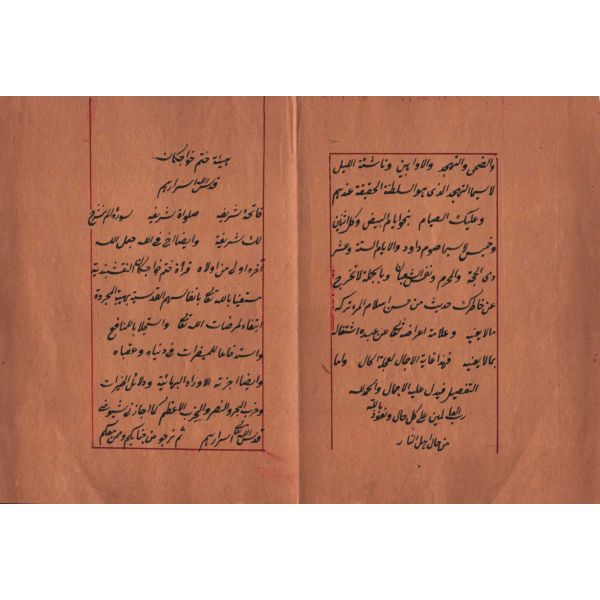 والضحى والتهجد والاوابين وناشئة الليل
لاسيما التهجد الذي هو السلطنة الحقيقة عندهم
وعليك الصيام بنحو ايام البيض وكل اثنين
وخميس لاسيما صوم داود والايام الستة وعشر
ذى الحجة والمحرم ونصف الشعبان وبالجملة لا تخرج
عن خاطرك حديث من حسن اسلام المرء تركه
مالا يعنيه وعلامة اعراضه تعالى عن عبده اشتغاله
بمالا يعنيه فهذا غاية الاجمال لعجلة الحال واما
التفصيل فيدل عليه الاجمال والحمد لله
رب العالمين على كل حال ونعوذ بالله
من حال اهل النار
هيئة ختم خواجكان
قدس الله اسرارهم
فاتحة شريفه صلواة شريفه سورة الم نشرح
لك شريفة وايضا اخى فى الله جعل الله
آخره اولى من اولاه قرأة ختم خواجكان النقشبندية
مستعينا بالله تعالى بانفاسهم القدسية بهيئة المجردة
ابتغاء لمرضات الله تعالى واستجلابا للمنافع
واستدفاعا للمضرات فى دنياه وعقباه
وايضا اجزته الاوراد البهائية ودلائل الخيرات
وحزب البحر والنصر والحزب الاعظم كما اجازنى شيوخى
قدس الله تعالى اسرارهم ثم نرجو من جنابكم وممن معكم